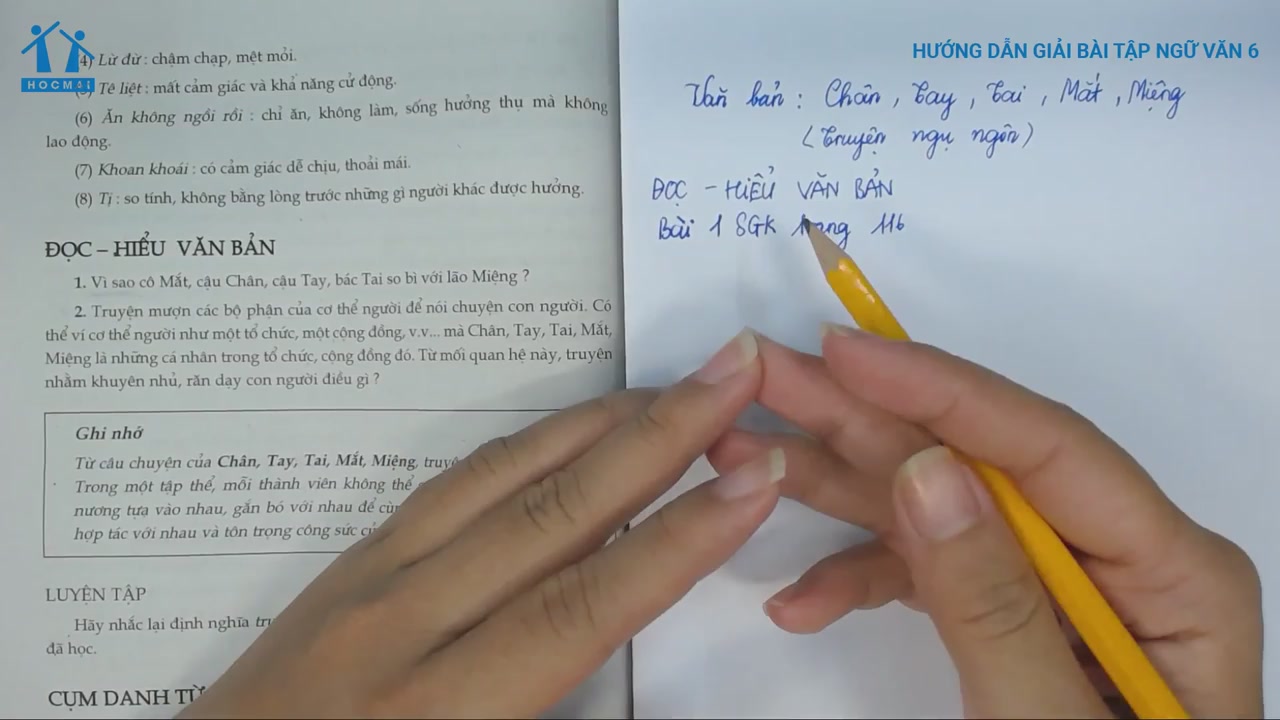 HOCMAI
HƯỚNG DẪN GIẢI BÀI TẬP NGỮ VĂN 6
(4) Lừ đừ : chậm chạp, mệt mỏi.
Tê liệt : mất cảm giác và khả năng cử động.
(6) Ăn không ngồi rồi : chỉ ăn, không làm, sống hưởng thụ mà không
lao động.
(7) Khoan khoái : có cảm giác dễ chịu, thoải mái.
(8) Tị : so tính, không bằng lòng trước những gì người khác được hưởng.
ĐỌC – HIỂU VĂN BẢN
1. Vì sao cô Mắt, cậu Chân, cậu Tay, bác Tai so bì với lão Miệng ?
2. Truyện mượn các bộ phận của cơ thể người để nói chuyện con người. Có
thể ví cơ thể người như một tổ chức, một cộng đồng, v.v... mà Chân, Tay, Tai, Mắt,
Miệng là những cá nhân trong tổ chức, cộng đồng đó. Từ mối quan hệ này, truyện
nhằm khuyên nhủ, răn dạy con người điều gì ?
Ghi nhớ
Từ câu chuyện của Chân, Tay, Tai, Mắt, Miệng,
Trong một tập thể, mỗi thành viên không thể
nương tựa vào nhau, gắn bó với nhau để
hợp tác với nhau và tôn trọng công sức
LUYỆN TẬP
Hãy nhắc lại định nghĩa
đã học.
CỤM DANH TỪ
Văn bản : Chân, Tay, Tai, Mắt, Miệng
(Truyện ngụ ngôn)
ĐỌC - HIỂU VĂN BẢN
Bài 1 SGK trang 116